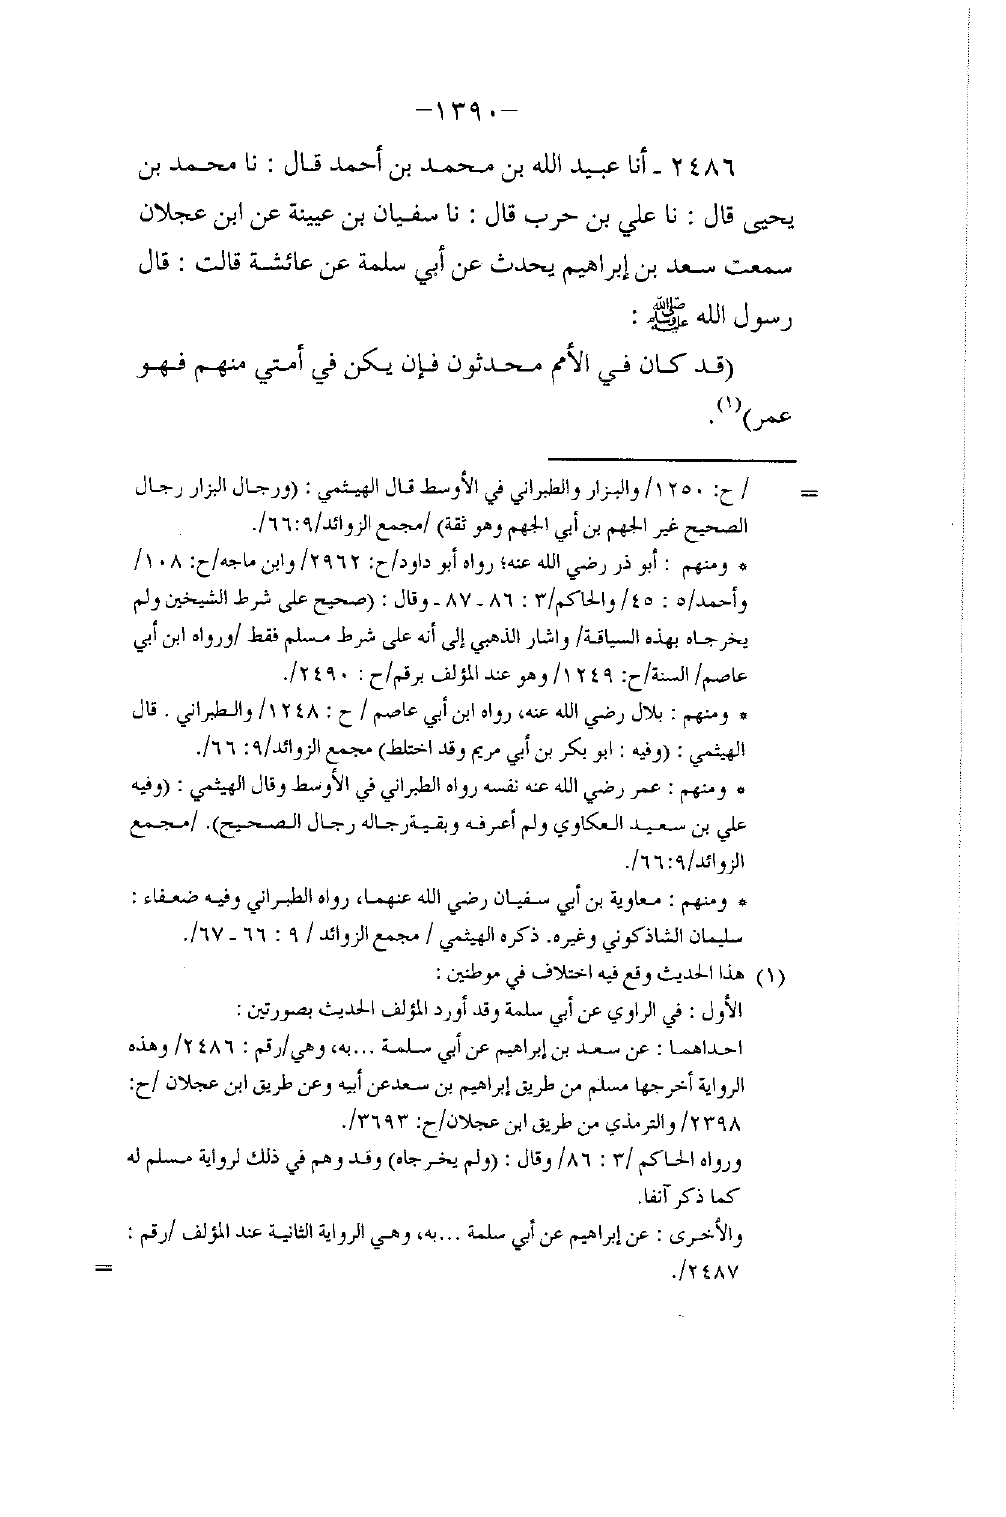 -١٣٩٠-
٢٤٨٦ ـ أنا عبيد الله بن محمد بن أحمد قال : نا محمد بن
يحيى قال : نا علي بن حرب قال : نا سفيان بن عيينة عن ابن عجلان
سمعت سعد بن إبراهيم يحدث عن أبي سلمة عن عائشة قالت : قال
رسول الله ﷺ :
(قد كان في الأمم محدثون فإن يكن في أمتي منهم فهو
عمر)(١).
= / ح: ١٢٥٠/ والبزار والطبراني في الأوسط قال الهيثمي : (ورجال البزار رجال
الصحيح غير الجهم بن أبي الجهم وهو ثقة) /مجمع الزوائد/٩:‏٦٦/.
* ومنهم : أبو ذر رضي الله عنه؛ رواه أبو داود/ح: ٢٩٦٢/ وابن ماجه/ح: ١٠٨/
وأحمد/٥ : ٤٥/ والحاكم/٣ : ٨٦ ـ ٨٧ ـ وقال : (صحيح على شرط الشيخين ولم
يخرجاه بهذه السياقة/ واشار الذهبي إلى أنه على شرط مسلم فقط /ورواه ابن أبي
عاصم/ السنة/ح: ١٢٤٩/ وهو عند المؤلف برقم/ح : ٢٤٩٠/.
* ومنهم : بلال رضي الله عنه، رواه ابن أبي عاصم / ح : ١٢٤٨/ والطبراني . قال
الهيثمي : (وفيه : ابو بكر بن أبي مريم وقد اختلط) مجمع الزوائد/٩: ٦٦/.
* ومنهم : عمر رضي الله عنه نفسه رواه الطبراني في الأوسط وقال الهيثمي : (وفيه
علي بن سعيد العكاوي ولم أعرفه وبقية رجاله رجال الصحيح). /مجمع
الزوائد/٩:‏٦٦/.
* ومنهم : معاوية بن أبي سفيان رضي الله عنهما، رواه الطبراني وفيه ضعفاء :
سليمان الشاذكوني وغيره. ذكره الهيثمي / مجمع الزوائد / ٩ : ٦٦ ـ ٦٧/.
(١) هذا الحديث وقع فيه اختلاف في موطنين :
الأول : في الراوي عن أبي سلمة وقد أورد المؤلف الحديث بصورتين :
احداهما : عن سعد بن إبراهيم عن أبي سلمة ...به، وهي/رقم : ٢٤٨٦/ وهذه
الرواية أخرجها مسلم من طريق إبراهيم بن سعدعن أبيه وعن طريق ابن عجلان /ح:
٢٣٩٨/ والترمذي من طريق ابن عجلان/ح: ٣٦٩٣/.
ورواه الحاكم /٣ : ٨٦/ وقال : (ولم يخرجاه) وقد وهم في ذلك لرواية مسلم له
كما ذكر آنفا.
والأخرى : عن إبراهيم عن أبي سلمة ...به، وهي الرواية الثانية عند المؤلف /رقم :
٢٤٨٧/. =